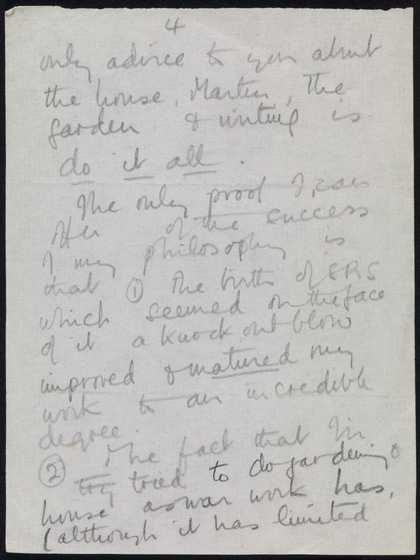 4
only advice to you about
the house, Martin, The
garden & writing is
do it all.
The only proof I can
offer of the success
of my philosophy is
that ① The birth of SRS
which seemed on the face
of it a knock out blow
improved & matured my
work to an incredible
degree.
② The fact that I'm
try tried to do gardening &
house as war work has,
(although it has limited